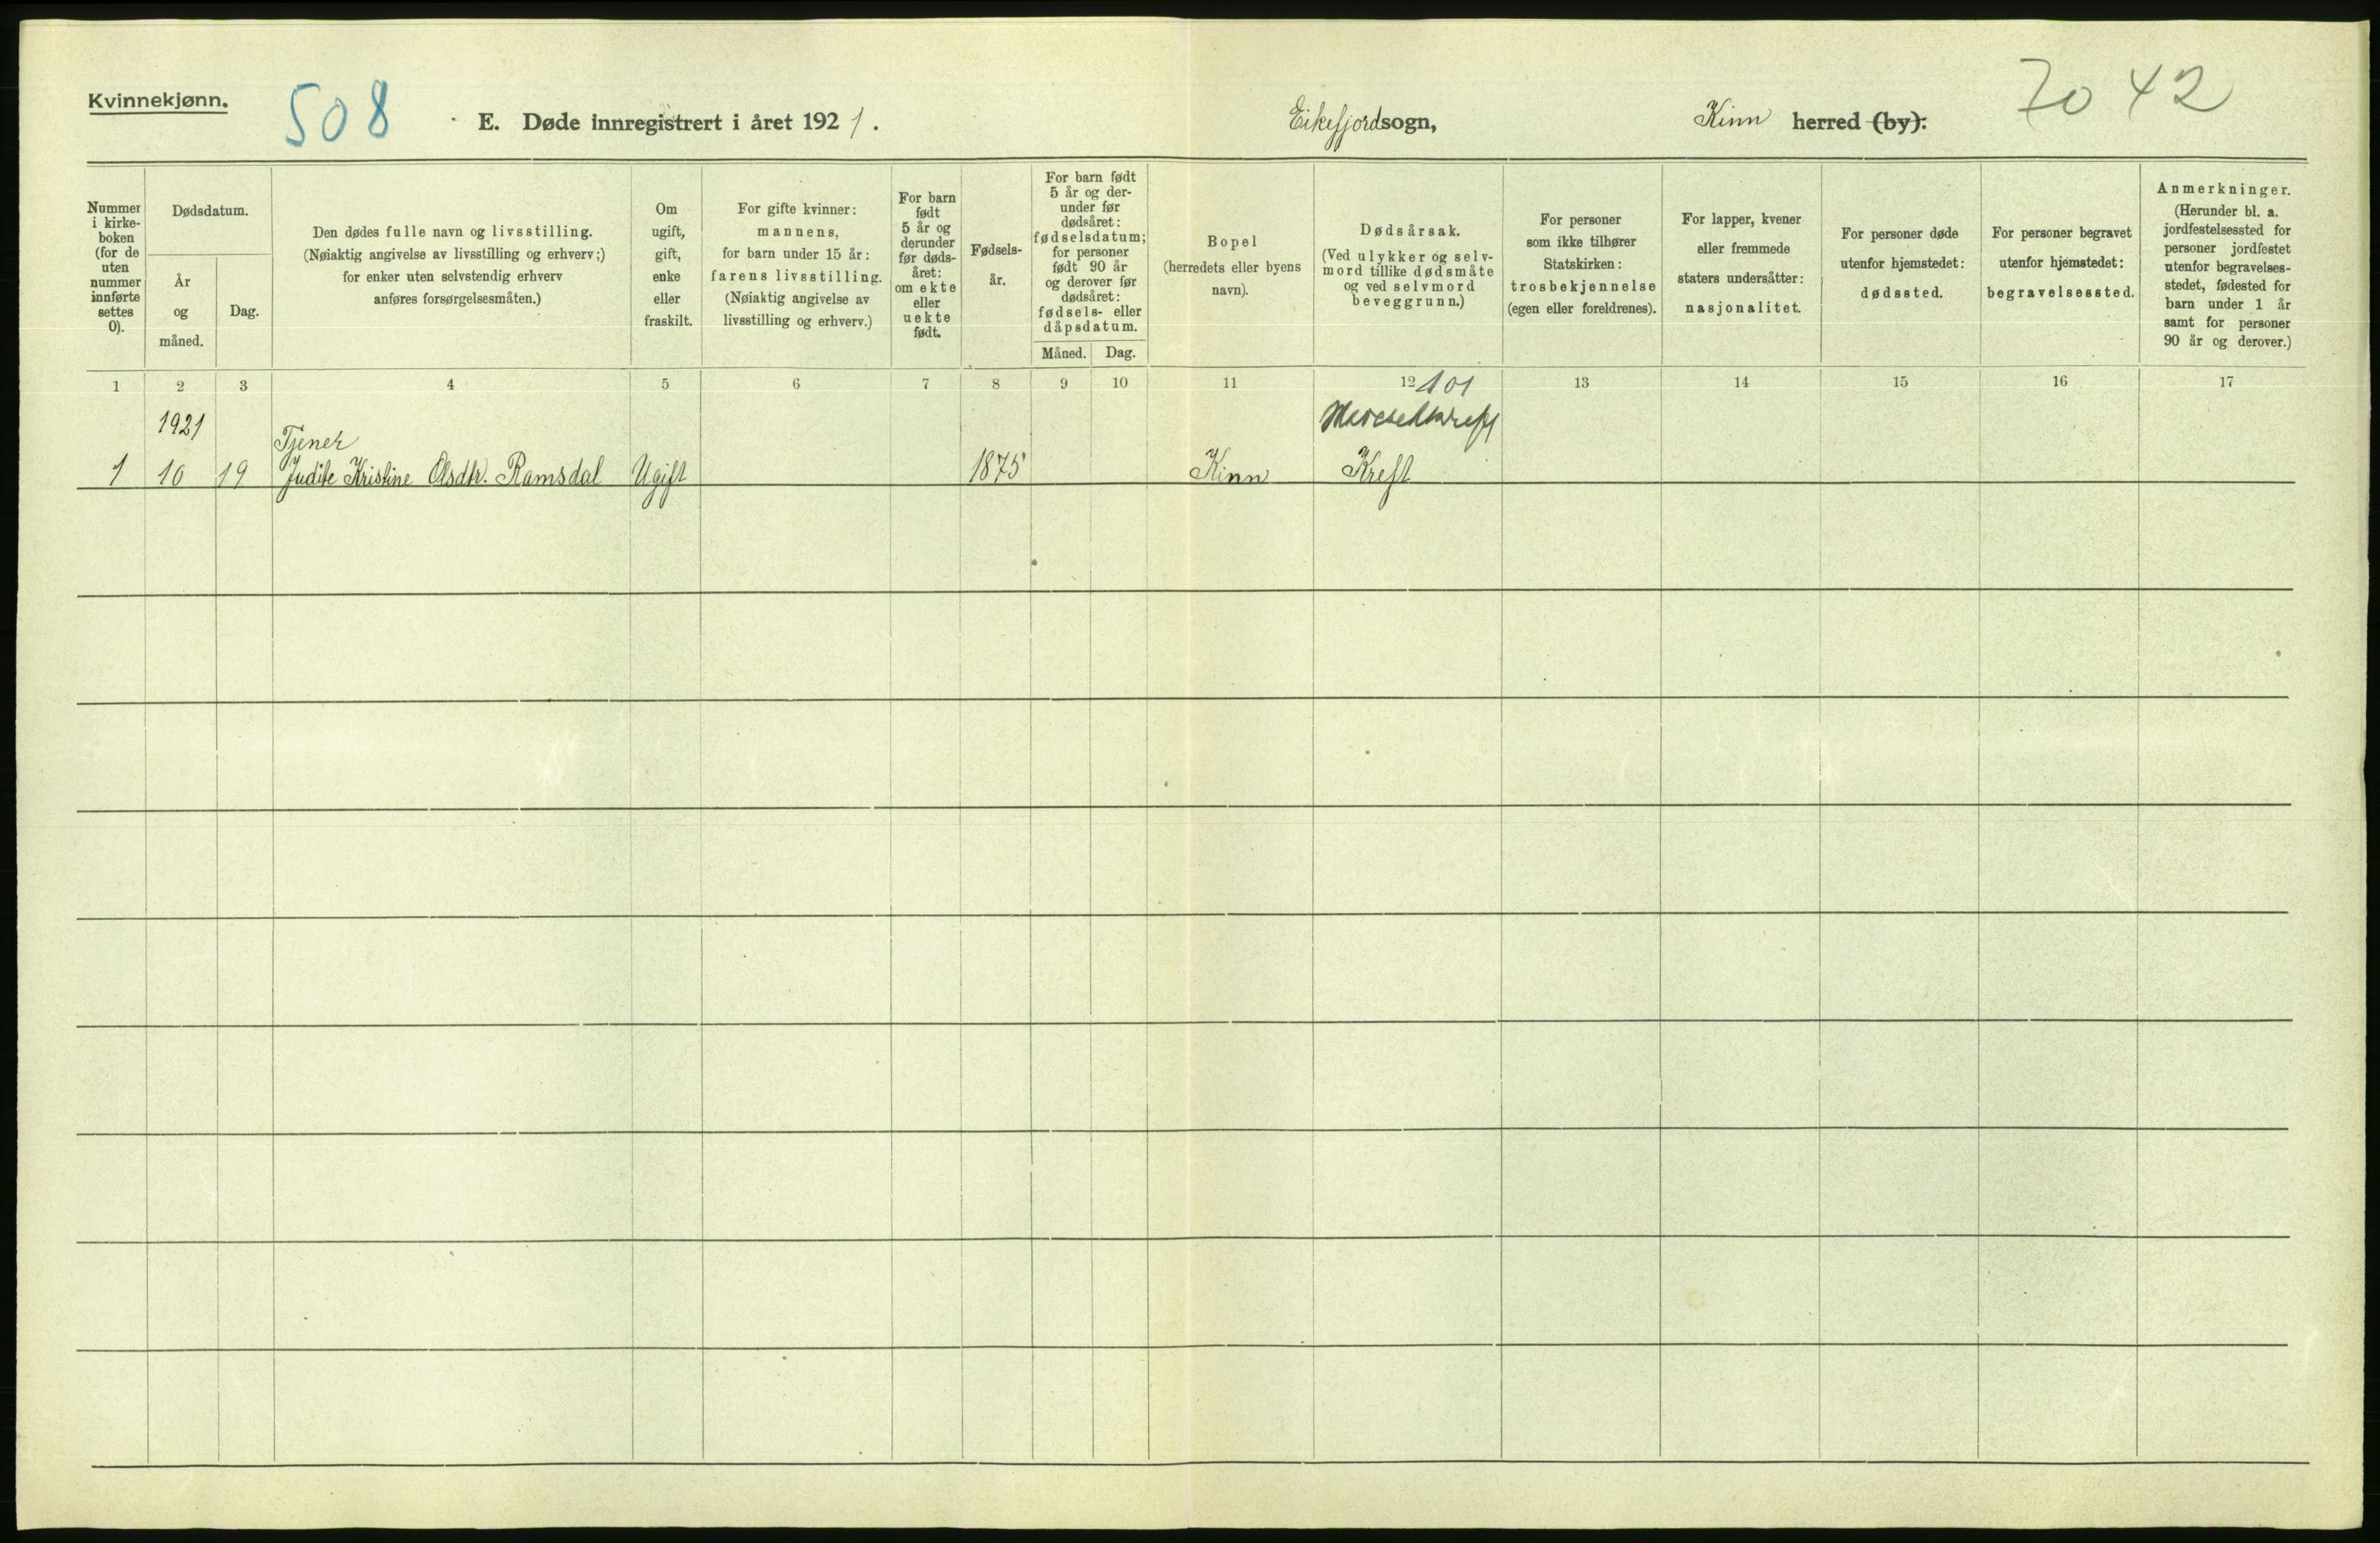 Kvinnekjønn.
508
E. Døde innregistrert i året 1921.
Eikefjord sogn,
Kinn herred (by).
70 42
Nummer
i kirke-
boken
(for de
uten
nummer
innførte
settes
0).
Dødsdatum.
År
og
måned.
Dag.
Den dødes fulle navn og livsstilling.
(Nøiaktig angivelse av livsstilling og erhverv;)
for enker uten selvstendig erhverv
anføres forsørgelsesmåten.)
Om
ugift,
gift,
enke
eller
fraskilt.
For gifte kvinner:
mannens,
for barn under 15 år:
farens livsstilling.
(Nøiaktig angivelse av
livsstilling og erhverv.)
For barn
født
5 år og
derunder
før døds-
året:
om ekte
eller
uekte
født.
Fødsels-
år.
For barn født
5 år og der-
under før
dødsåret:
fødselsdatum;
for personer
født 90 år
og derover før
dødsåret:
fødsels- eller
dåpsdatum.
Måned. Dag.
Bopel
(herredets eller byens
navn).
Dødsårsak.
(Ved ulykker og selv-
mord tillike dødsmåte
og ved selvmord
beveggrunn.)
For personer
som ikke tilhører
Statskirken:
trosbekjennelse
(egen eller foreldrenes).
For lapper, kvener
eller fremmede
staters undersåtter:
nasjonalitet.
For personer døde
utenfor hjemstedet:
dødssted.
For personer begravet
utenfor hjemstedet:
begravelsessted.
Anmerkninger.
(Herunder bl. a.
jordfestelsessted for
personer jordfestet
utenfor begravelses-
stedet, fødested for
barn under 1 år
samt for personer
90 år og derover.)
1 2 3 4 5 6 7 8 9 10 11 12 101 13 14 15 16 17
1921
Tjener
1 10 19 Judite Kristine Olsdtr. Ramsdal Ugift 1875 Kinn Kreft